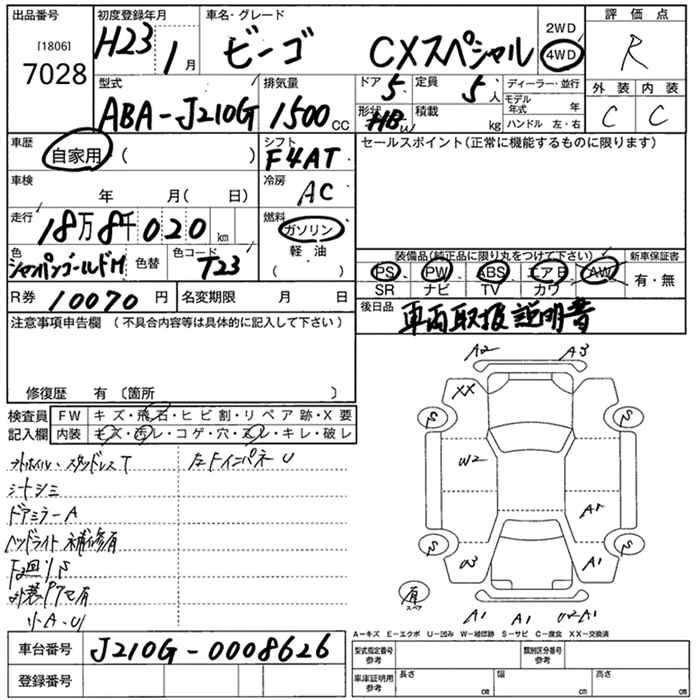 出品番号
[1806]
7028
初度登録年月
H23 1月
車名・グレード
ビーゴ CXスペシャル
2WD
4WD
評価点
R
外装 内装
C C
型式
ABA-J210G
排気量
1500cc
ドア 5
定員 5人
形状 HB
積載 kg
ディーラー・並行
モデル年式 年
ハンドル 左・右
車歴
自家用 ( )
シフト
F4AT
セールスポイント(正常に機能するものに限ります)
車検
年 月( 日)
冷房
AC
走行
18万8千020km
燃料
ガソリン
軽・油
( )
色
シャンパンゴールドM
色替
色コード
T23
装備品(純正品に限り丸をつけて下さい)
PS PW ABS エアB AW
SR ナビ TV カワ
新車保証書
有・無
R券 10070円
名変期限 月 日
後日品
車両取扱説明書
注意事項申告欄 (不具合内容等は具体的に記入して下さい)
修復歴 有 〔箇所 〕
検査員
記入欄
FW キズ・飛石・ヒビ割・リペア跡・X要
内装 キズ・汚レ・コゲ・穴・スレ・キレ・破レ
スタッドレスT
左FインパネU
シートシミ
ドアミラーA
ヘッドライト補修有
F廻りS
小A・U
A2 A3
XX
S S
W2
A1
S S
U3 A1
有
スペア
A1 A1 U2A1
A-キズ E-エクボ U-凹み W-補修跡 S-サビ C-腐食 XX-交換済
車台番号
J210G-0008626
登録番号
型式指定番号
参考
類別区分番号
参考
車庫証明用
参考
長さ cm
幅 cm
高さ cm